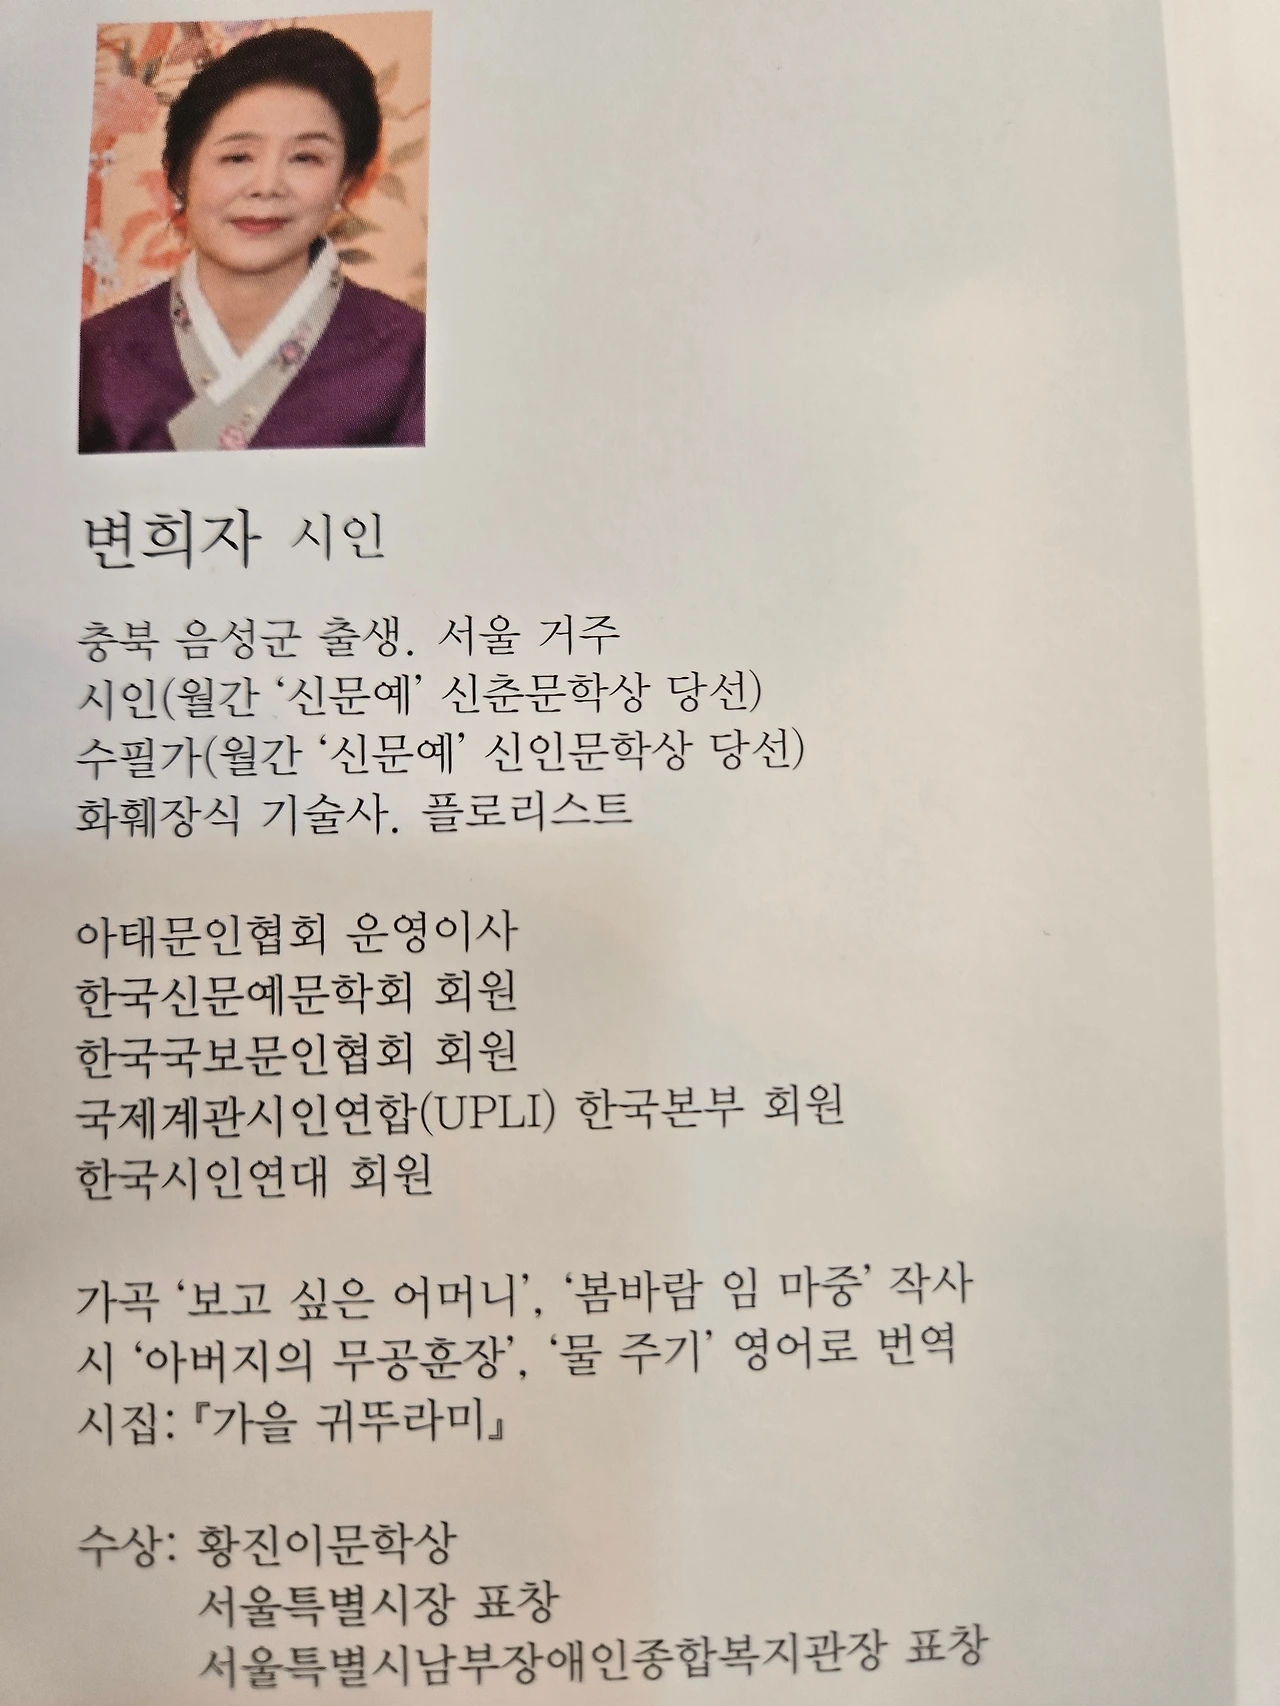 변희자 시인
충북 음성군 출생. 서울 거주
시인(월간 ‘신문예’ 신춘문학상 당선)
수필가(월간 ‘신문예’ 신인문학상 당선)
화훼장식 기술사. 플로리스트
아태문인협회 운영이사
한국신문예문학회 회원
한국국보문인협회 회원
국제계관시인연합(UPLI) 한국본부 회원
한국시인연대 회원
가곡 ‘보고 싶은 어머니’, ‘봄바람 임 마중’ 작사
시 ‘아버지의 무공훈장’, ‘물 주기’ 영어로 번역
시집: 『가을 귀뚜라미』
수상: 황진이문학상
서울특별시장 표창
서울특별시남부장애인종합복지관장 표창